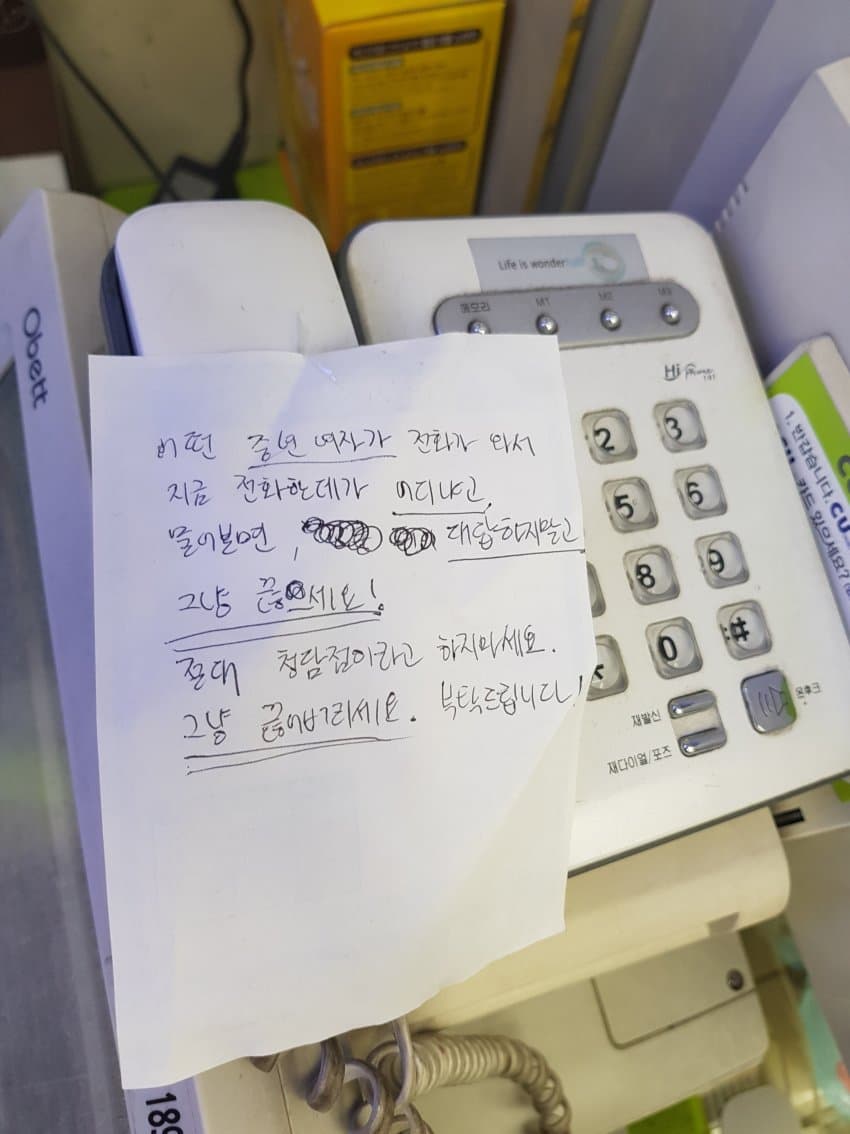 Life is wonder
메모리 M1 M2 M3
Obett
Hi Phone
어떤 중년 여자가 전화가 와서
지금 전화한데가 어디냐고
물어보면, 대답하지말고
그냥 끊으세요!
절대 청담점이라고 하지마세요.
그냥 끊어버리세요. 부탁드립니다!
2 3
5 6
8 9
* 0 #
재발신
재다이얼/포즈
온후크
1. 반갑습니다. CU
카드 있으세요?
189